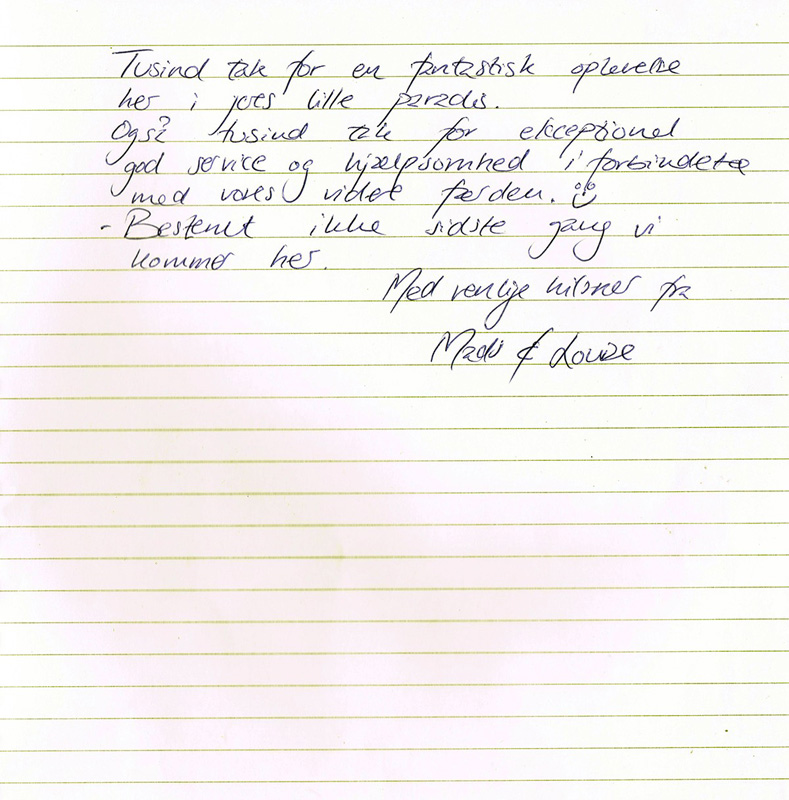 Tusind tak for en fantastisk oplevelse
her i jeres lille paradis.
Også tusind tak for ekceptionel
god service og hjælpsomhed i forbindelse
med vores videre færden. :)
- Bestemt ikke sidste gang vi
kommer her.
Med venlige hilsner fra
Mads & Louise